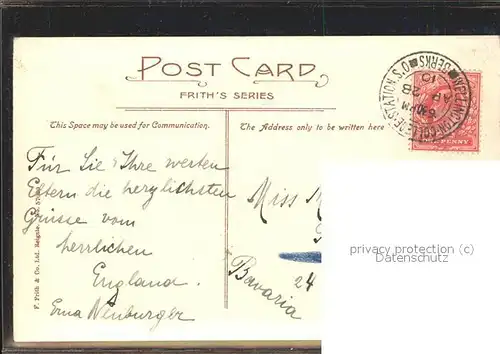 POST CARD
FRITH'S SERIES
This Space may be used for Communication.
The Address only to be written here
Für Sie, Ihre werten
Eltern die herzlichsten
Grüsse vom
herrlichen
England.
Erna Neuburger
Miss
Bavaria
24
WELLINGTON COLLEGE STATION S.O.
BERKS
AP 28
10
PENNY
F. Frith & Co. Ltd. Reigate.
privacy protection (c)
Datenschutz